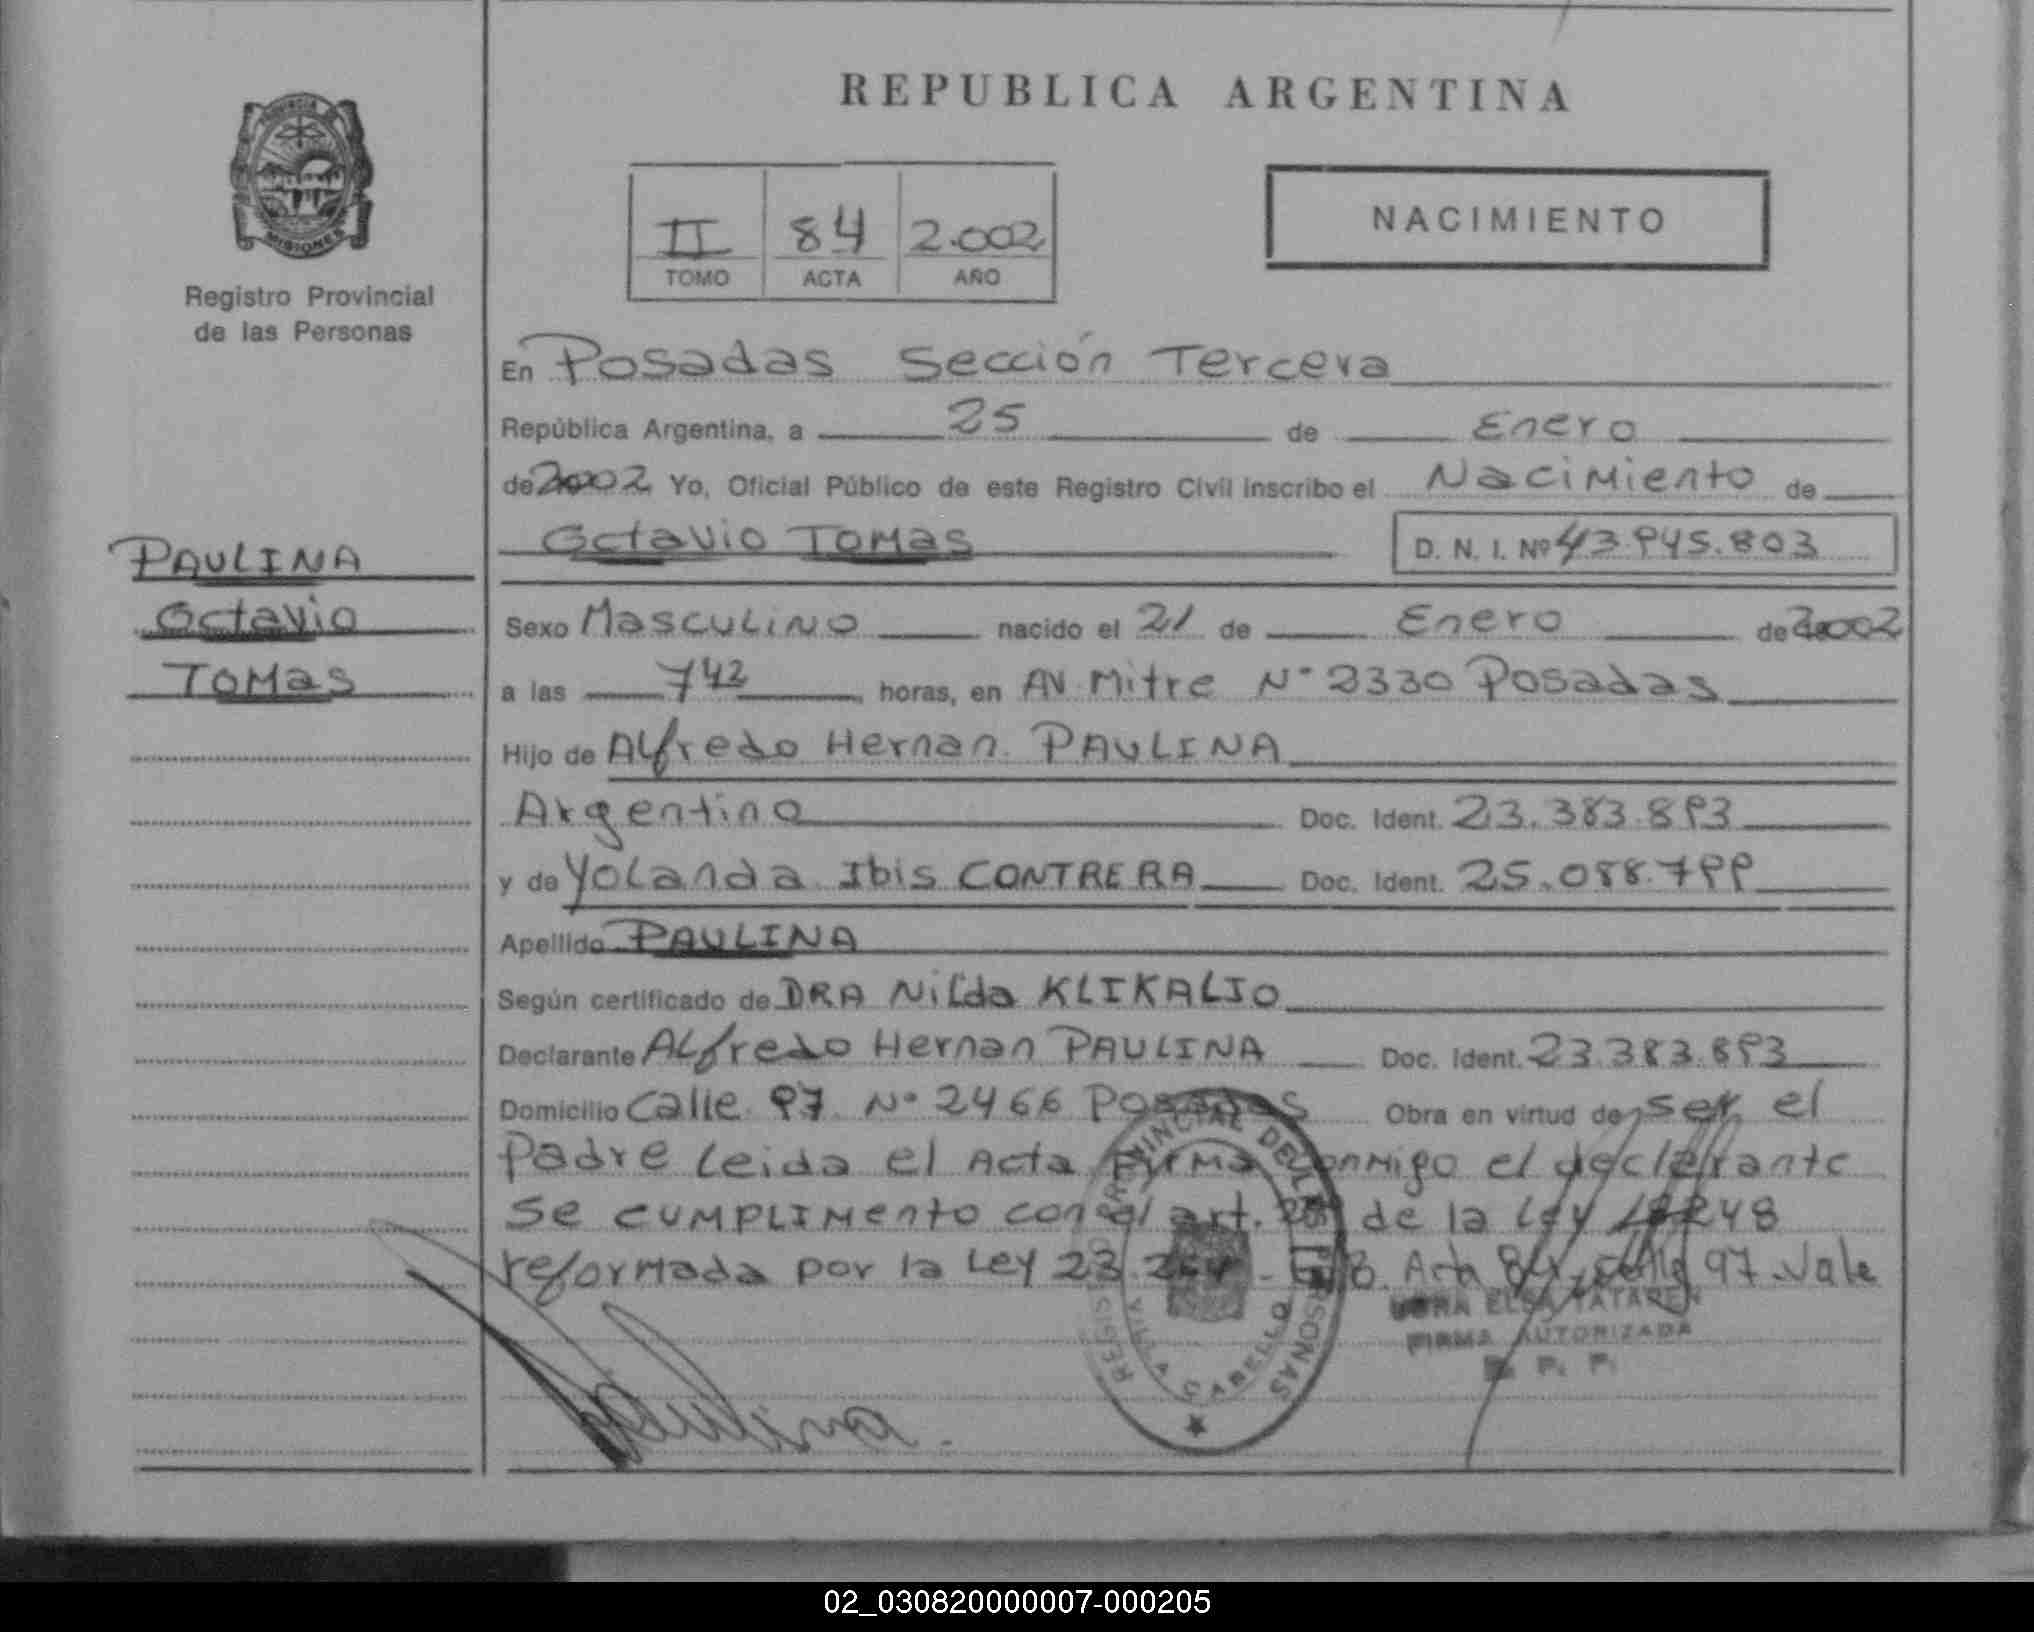 REPUBLICA ARGENTINA
PROVINCIA
MISIONES
Registro Provincial
de las Personas
II 84 2.002
TOMO ACTA AÑO
NACIMIENTO
En Posadas Sección Tercera
República Argentina, a 25 de Enero
de 2002 Yo, Oficial Público de este Registro Civil inscribo el Nacimiento de
Octavio Tomas D. N. I. Nº 43.945.803
PAULINA
Octavio
Tomas
Sexo Masculino nacido el 21 de Enero de 2002
a las 742 horas, en AV. Mitre Nº 2330 Posadas
Hijo de Alfredo Hernan PAULINA
Argentino Doc. Ident. 23.383.893
y de Yolanda Ibis CONTRERA Doc. Ident. 25.088.799
Apellido PAULINA
Según certificado de DRA Nilda KLIKALIO
Declarante Alfredo Hernan PAULINA Doc. Ident. 23.383.893
Domicilio Calle 97 Nº 2466 Posadas Obra en virtud de ser el
Padre leida el Acta firma conmigo el declarante
Se cumplimento con el art. de la Ley 18248
reformada por la Ley 23 Acta 84 97. Vale
Paulina
FIRMA AUTORIZADA
R. P. P.
REGISTRO PROVINCIAL DE LAS PERSONAS
VILLA CABELLO
02_030820000007-000205